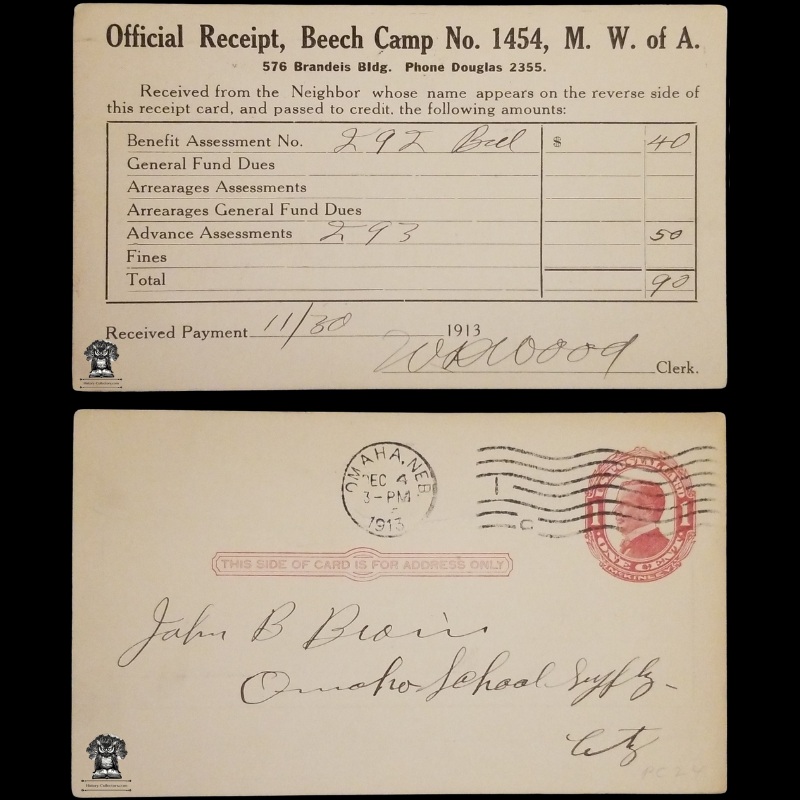 Official Receipt, Beech Camp No. 1454, M. W. of A.
576 Brandeis Bldg. Phone Douglas 2355.
Received from the Neighbor whose name appears on the reverse side of
this receipt card, and passed to credit, the following amounts:
Benefit Assessment No. 292 Bal $ 40
General Fund Dues
Arrearages Assessments
Arrearages General Fund Dues
Advance Assessments 293 50
Fines
Total 90
Received Payment 11/30 1913
Wood Clerk.
History-Collectors.com
OMAHA, NEB.
DEC 4
3-PM
1913
U.S. POSTAL CARD
1 1
ONE CENT
McKINLEY
THIS SIDE OF CARD IS FOR ADDRESS ONLY
John B
Omaha School Supply
City
PC24
History-Collectors.com